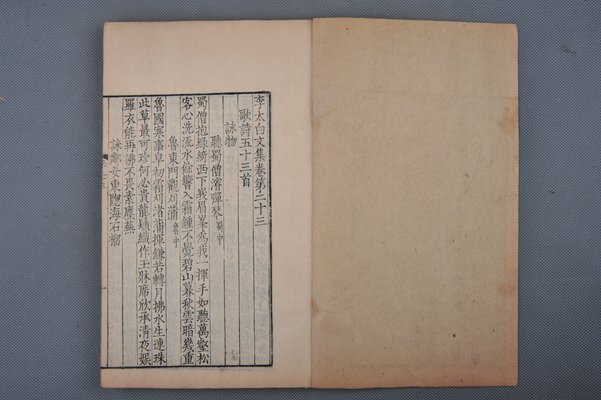 李太白文集卷第二十三
歌詩五十三首
詠物
聽蜀僧濬彈琴 蜀中
蜀僧抱綠綺西下峨眉峯為我一揮手如聽萬壑松
客心洗流水餘響入霜鍾不覺碧山暮秋雲暗幾重
魯東門觀刈蒲 魯中
魯國寒事早初霜刈渚蒲揮鎌若轉月拂水生連珠
此草最可珍何必貴龍鬚織作玉牀席欣承清夜娛
羅衣能再拂不畏素塵蕪
詠鄰女東牕海石榴